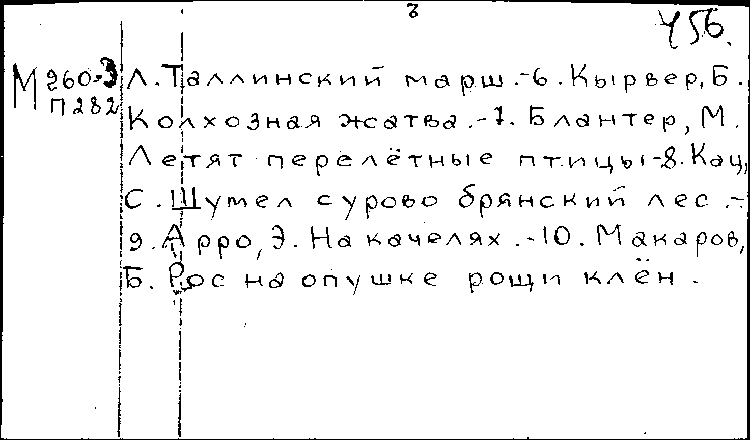 2
У56.
М 260-3 Л. Таллинский марш.-6. Кырвер, Б.
П282 Колхозная жатва.-7. Блантер, М.
Летят перелётные птицы-8. Кац,
С. Шумел сурово брянский лес.-
9. Арро, Э. На качелях.-10. Макаров,
Б. Рос на опушке рощи клён.